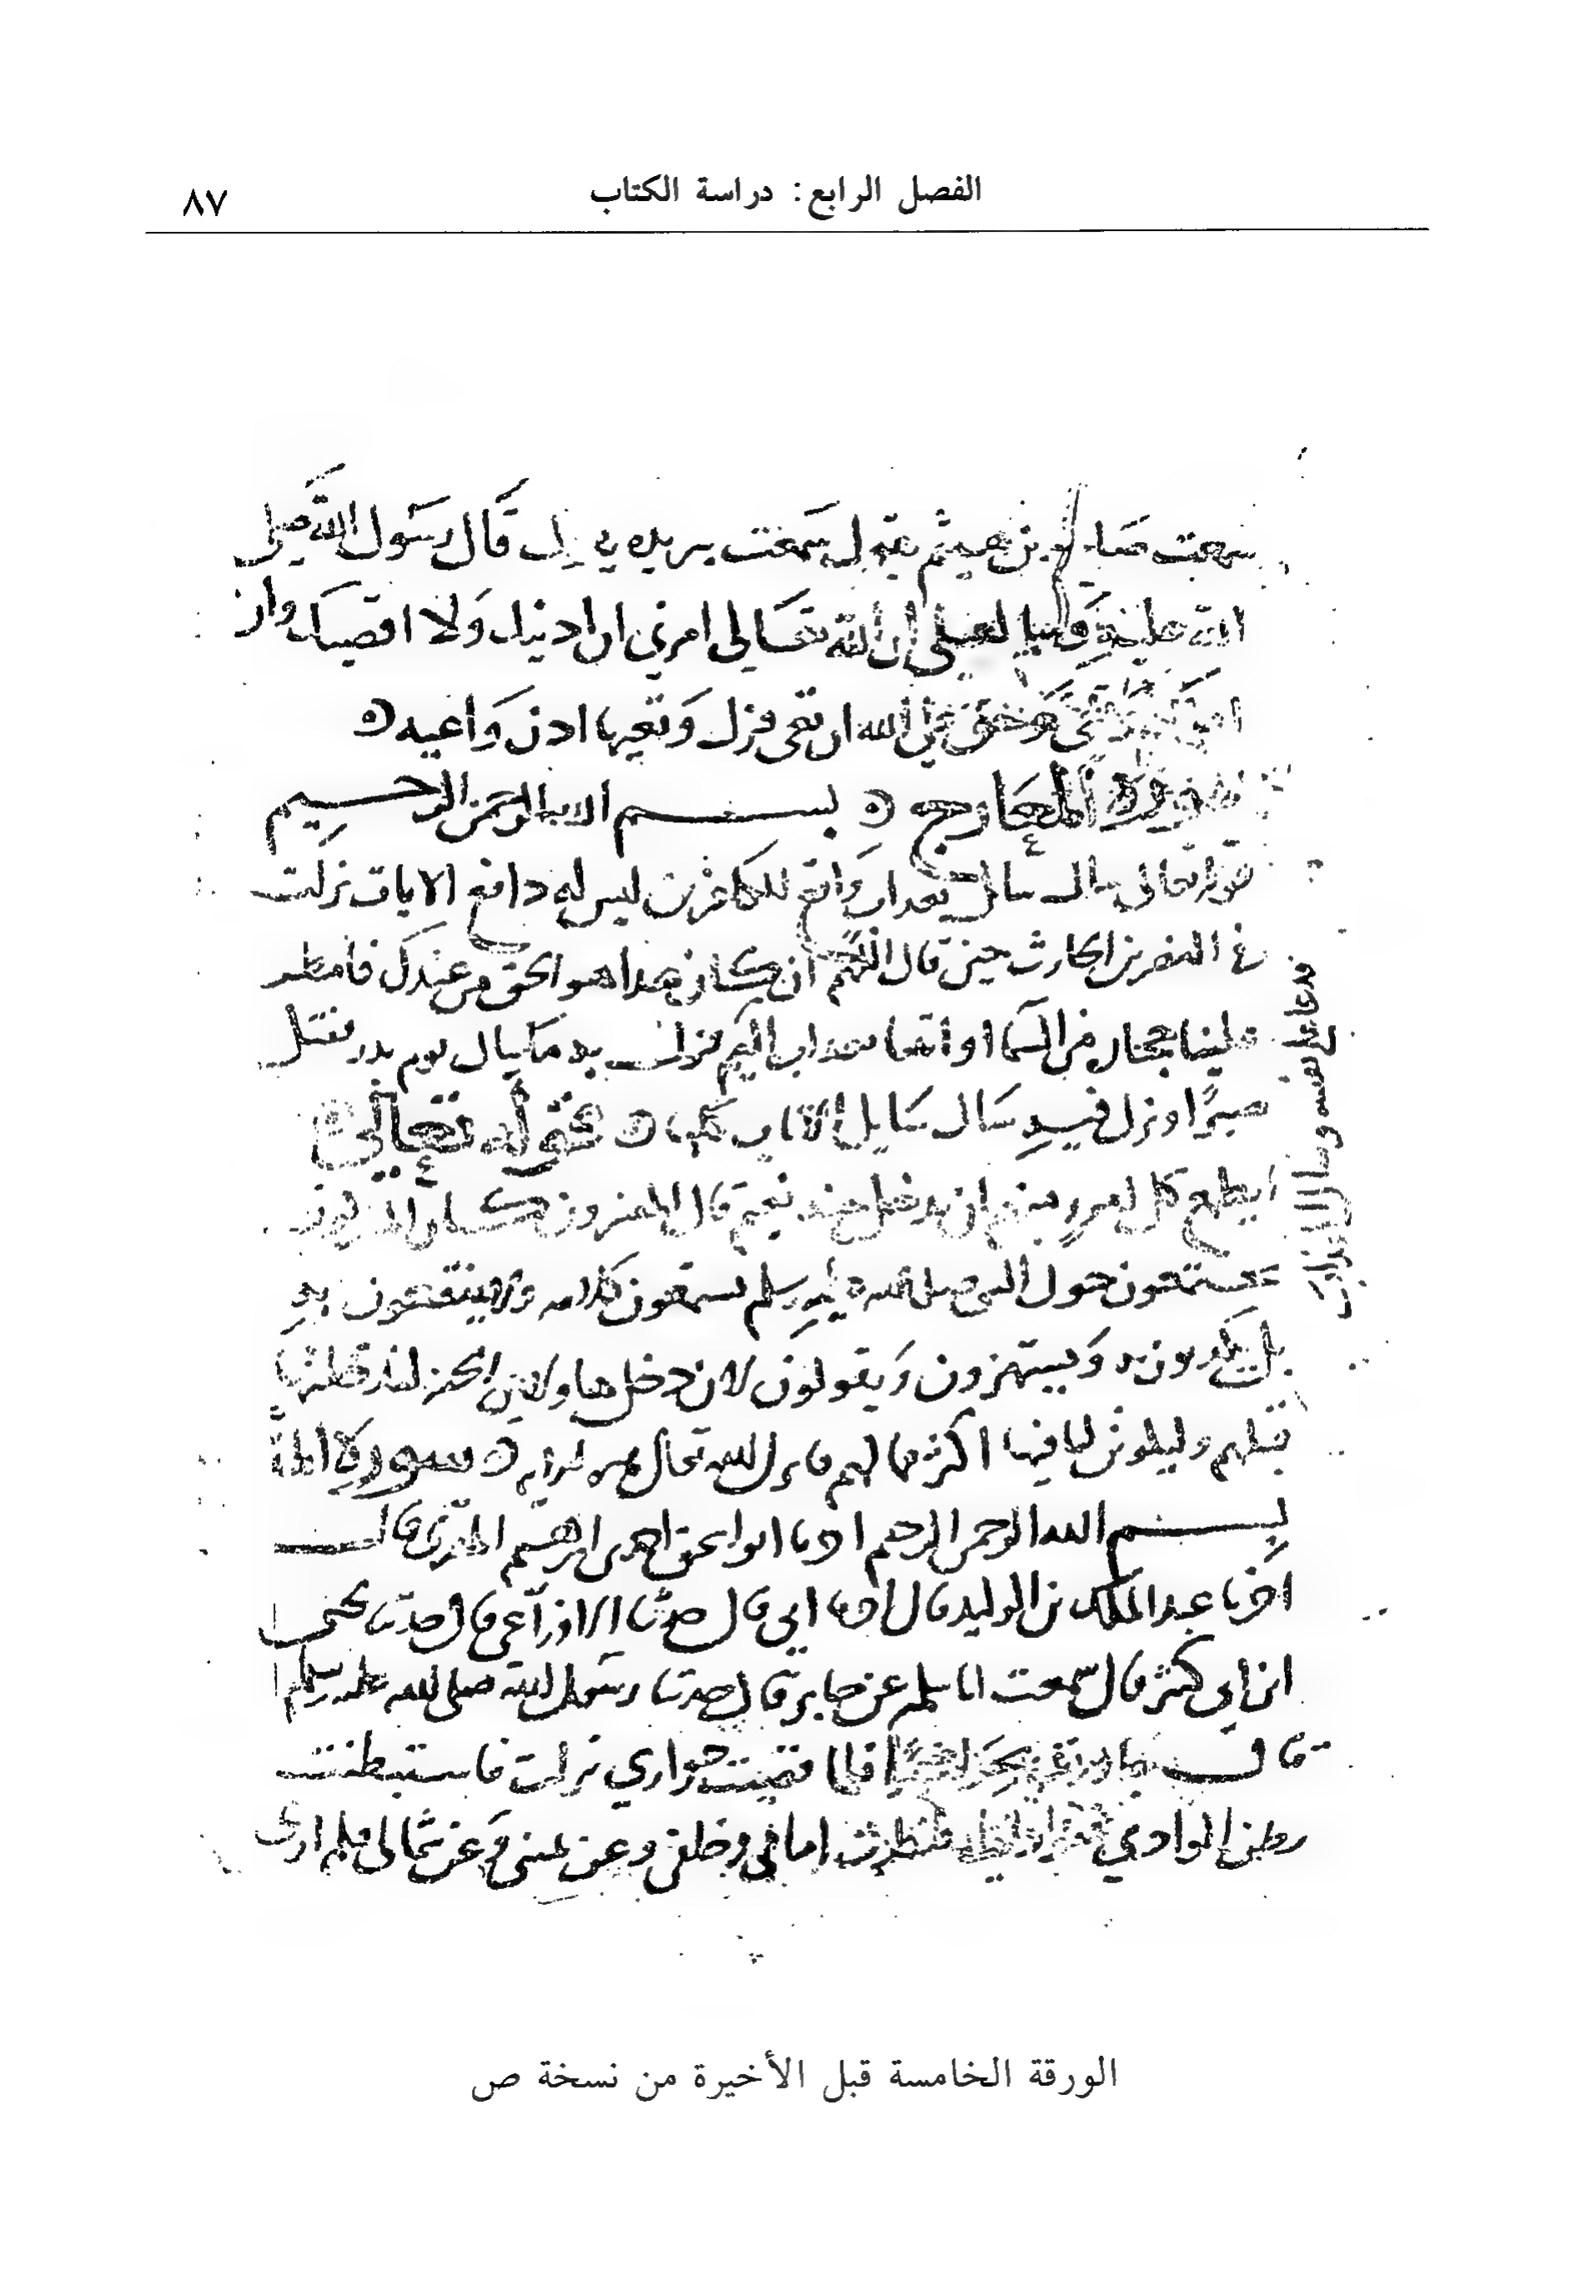 الفصل الرابع: دراسة الكتاب
٨٧
سمعت صالح بن هيثم يقول سمعت بريده يقول قال رسول الله صلى
الله عليه وسلم لعلي ان الله تعالى امرني ان ادنيك ولا اقصيك وان
اعلمك وتعي وحق على الله ان تعي فنزل وتعيها اذن واعيه
سورة المعارج بسم الله الرحمن الرحيم
قوله تعالى سال سائل بعذاب واقع للكافرين ليس له دافع الايات نزلت
في النضر بن الحارث حين قال اللهم ان كان هذا هو الحق من عندك فامطر
علينا حجاره من السما او ائتنا بعذاب اليم فنزل به ما سال يوم بدر فقتل
صبرا ونزل فيه سال سايل الايات كلها قوله تعالى
ايطمع كل امرء منهم ان يدخل جنه نعيم قال المفسرون كان المشركون
يجتمعون حول النبي صلى الله عليه وسلم يستمعون كلامه ولا ينتفعون به
بل يكذبون به ويستهزون ويقولون لان دخل هاولاء الجنه لندخلنها
قبلهم وليكونن لنا فيها اكثر مما لهم فانزل الله تعالى هذه الايه سورة المدثر
بسم الله الرحمن الرحيم اخبرنا ابو اسحق احمد بن ابرهيم المقري قال
اخبرنا عبد الملك بن الوليد قال اخبرنا ابي قال حدثنا الاوزاعي قال حدثنا يحيى
ابن ابي كثير قال سمعت ابا سلمه عن جابر قال حدثنا رسول الله صلى الله عليه وسلم
قال جاورت بحرا شهرا فلما قضيت جواري نزلت فاستبطنت
بطن الوادي فنوديت فنظرت امامي وخلفي وعن يميني وعن شمالي فلم ارى
فدعا على نفسه وسال العذاب
الورقة الخامسة قبل الأخيرة من نسخة ص